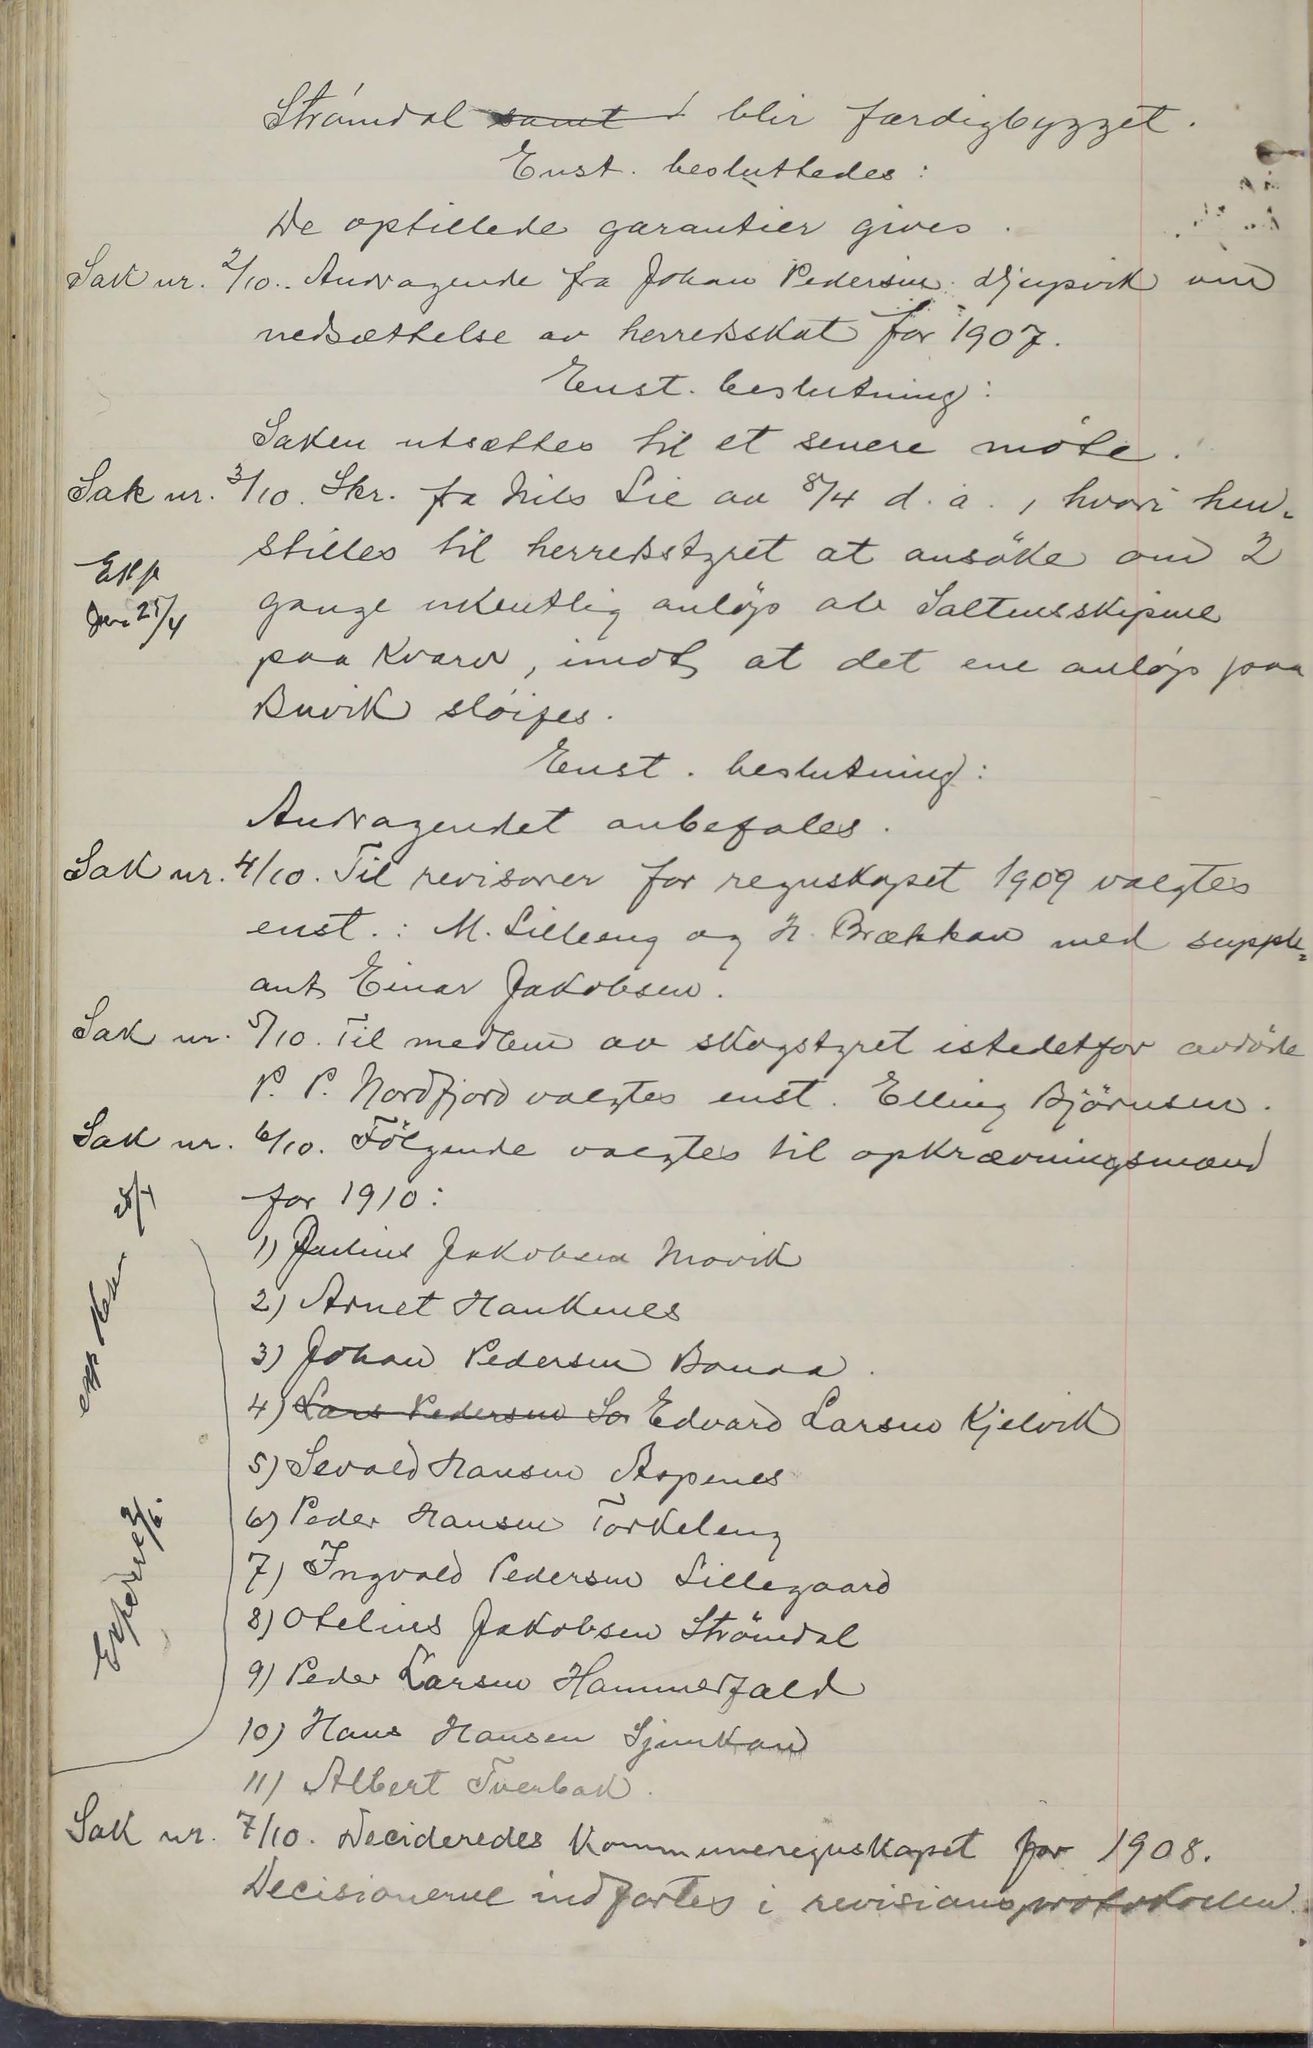 Strömdal samt blir færdigbygget.
Enst. besluttedes:
De opstillede garantier gives.
Sak nr. 2/10. Andragende fra Johan Pedersen Djupvik om
nedsættelse av herredsskat for 1907.
Enst. beslutning:
Saken utsættes til et senere möte.
Sak nr. 3/10. Skr. fra Nils Lie av 8/4 d. a., hvori hen-
stilles til herredsstyret at ansöke om 2
Exp
25/4
gange ukentlig anlöp av Saltensskipene
paa Kvarv, imot at det ene anlöp paa
Buvik slöifes.
Enst. beslutning:
Andragendet anbefales.
Sak nr. 4/10. Til revisorer for regnskapet 1909 valgtes
enst.: M. Lilleeng og H. Brækkan med supple-
ant Einar Jakobsen.
Sak nr. 5/10. Til medlem av skogstyret istedetfor avdöde
P. P. Nordfjord valgtes enst. Elling Björnsen.
Sak nr. 6/10. Fölgende valgtes til opkrævningsmænd
for 1910:
1) Julius Jakobsen Movik
2) Arnet Hanknes
3) Johan Pedersen Bonaa.
4) Lars Pedersen So Edvard Larsen Kjelvik
5) Sevald Hansen Aspenes
6) Peder Hansen Torkeleng
7) Ingvald Pedersen Lillegaard
8) Otelius Jakobsen Strömdal
9) Peder Larsen Hammerfald
10) Hans Hansen Sjunkan
11) Albert Tverbak.
Sak nr. 7/10. Decideredes kommuneregnskapet for 1908.
Decisionerne indförtes i revisionsprotokollen.